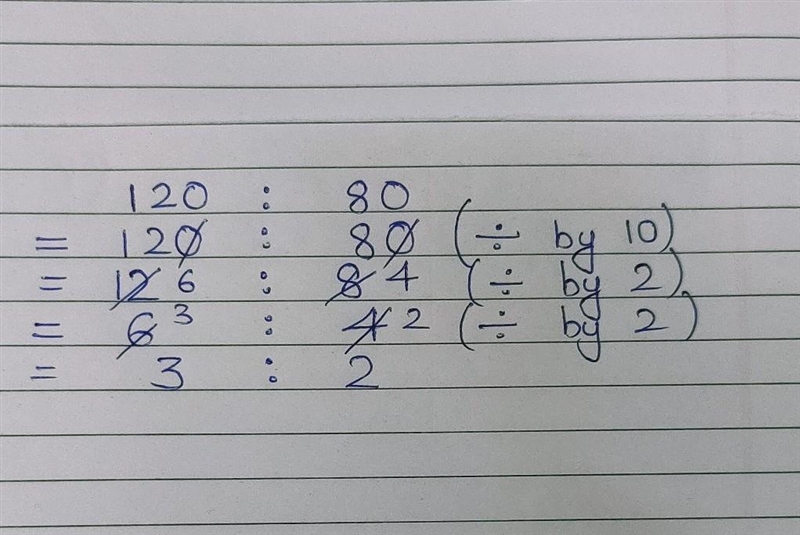 120 : 80
= 120 : 80 (÷ by 10)
= 12 6 : 8 4 (÷ by 2)
= 6 3 : 4 2 (÷ by 2)
= 3 : 2